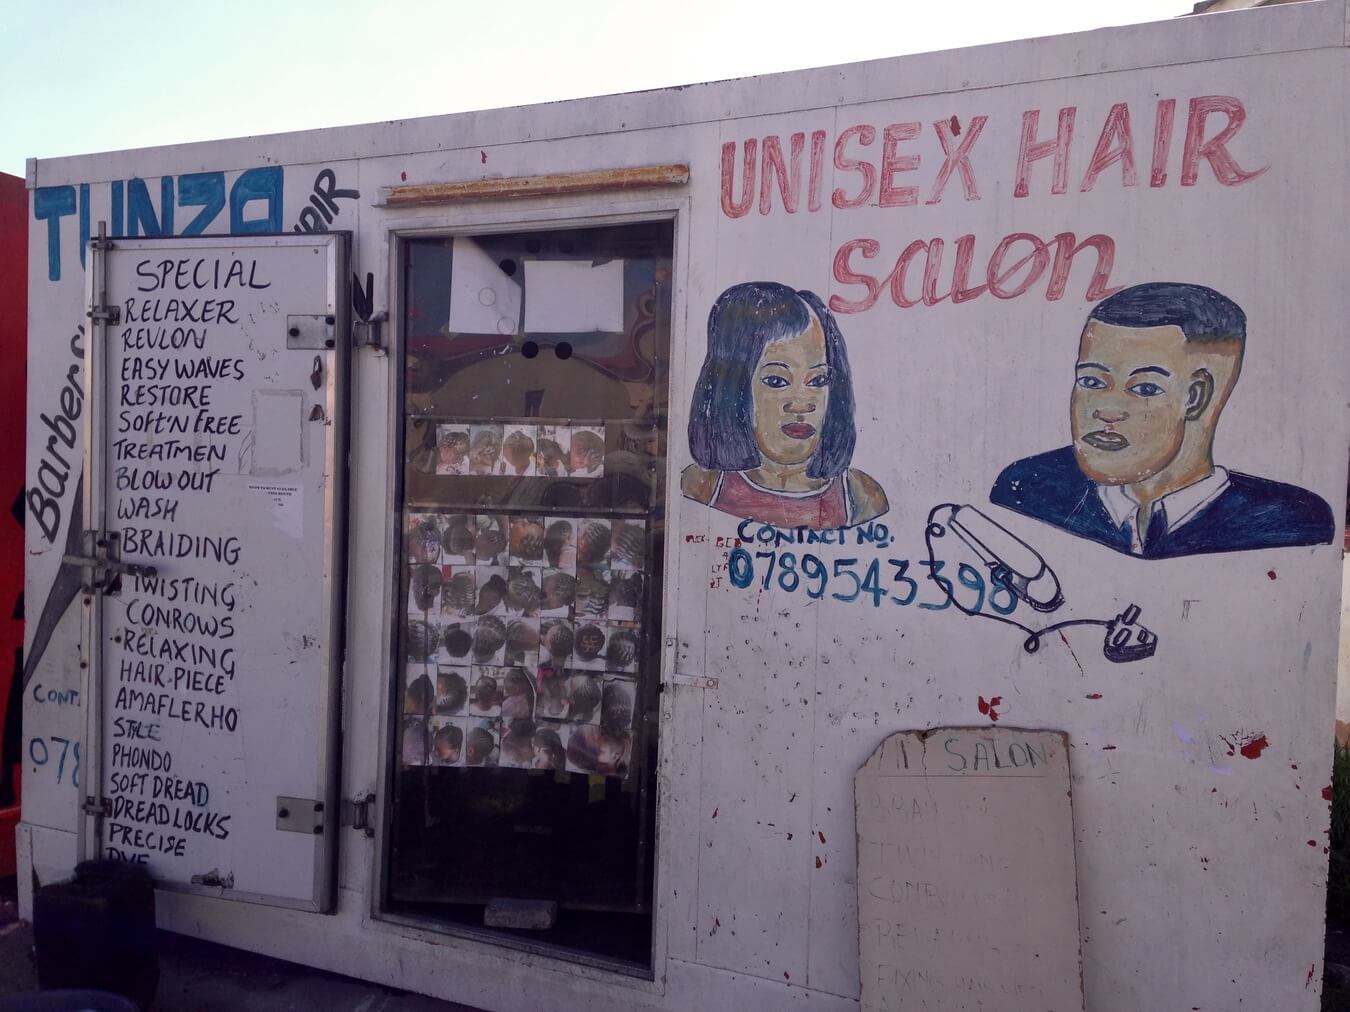 TUNZA
HAIR
Barbers
SPECIAL
RELAXER
REVLON
EASY WAVES
RESTORE
SOFT'N FREE
TREATMEN
BLOW OUT
WASH
BRAIDING
TWISTING
CONROWS
RELAXING
HAIR.PIECE
AMAFLERHO
STYLE
PHONDO
SOFT DREAD
DREADLOCKS
PRECISE
DYE
CONT
078
UNISEX HAIR
salon
CONTACT NO.
0789543398
SALON